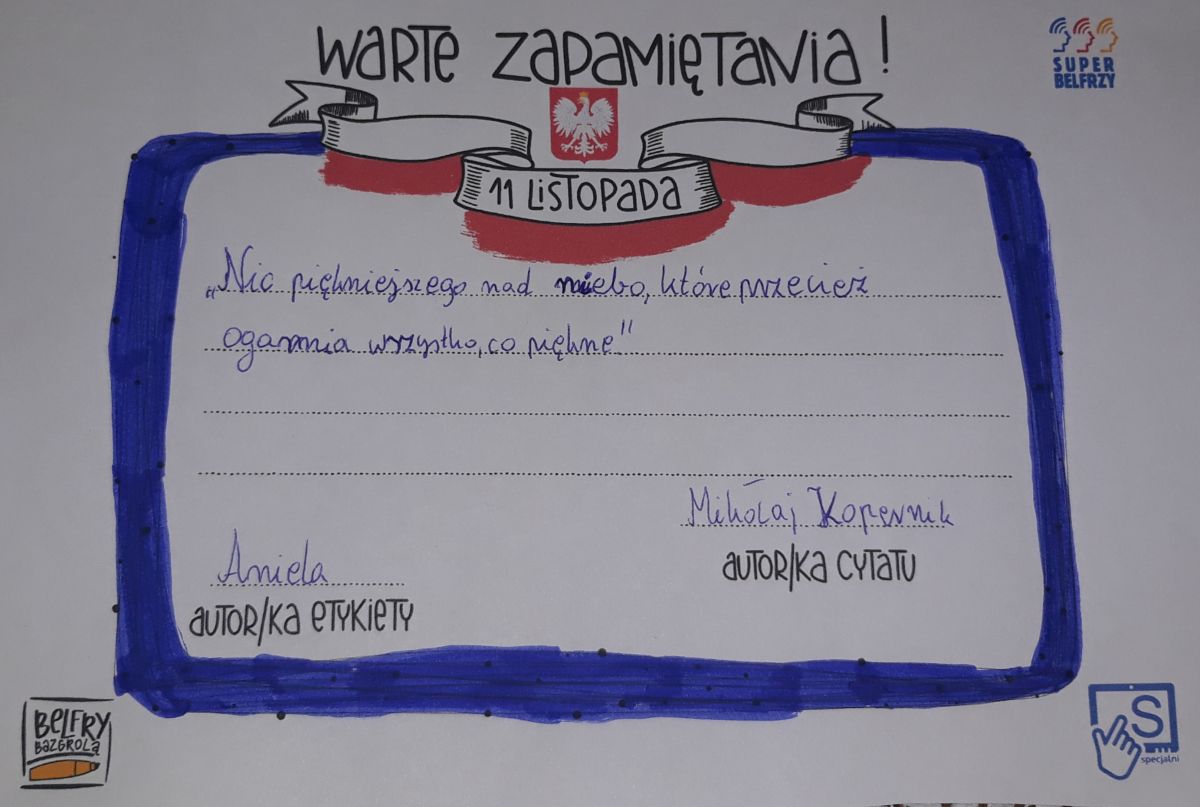 WARTE ZAPAMIĘTANIA!
SUPER
BELFRZY
11 LISTOPADA
„Nic piękniejszego nad niebo, które przecież
ogarnia wszystko, co piękne"
Mikołaj Kopernik
AUTOR/KA CYTATU
Aniela
AUTOR/KA ETYKIETY
BELFRY
BAZGROLĄ
S
specjalni